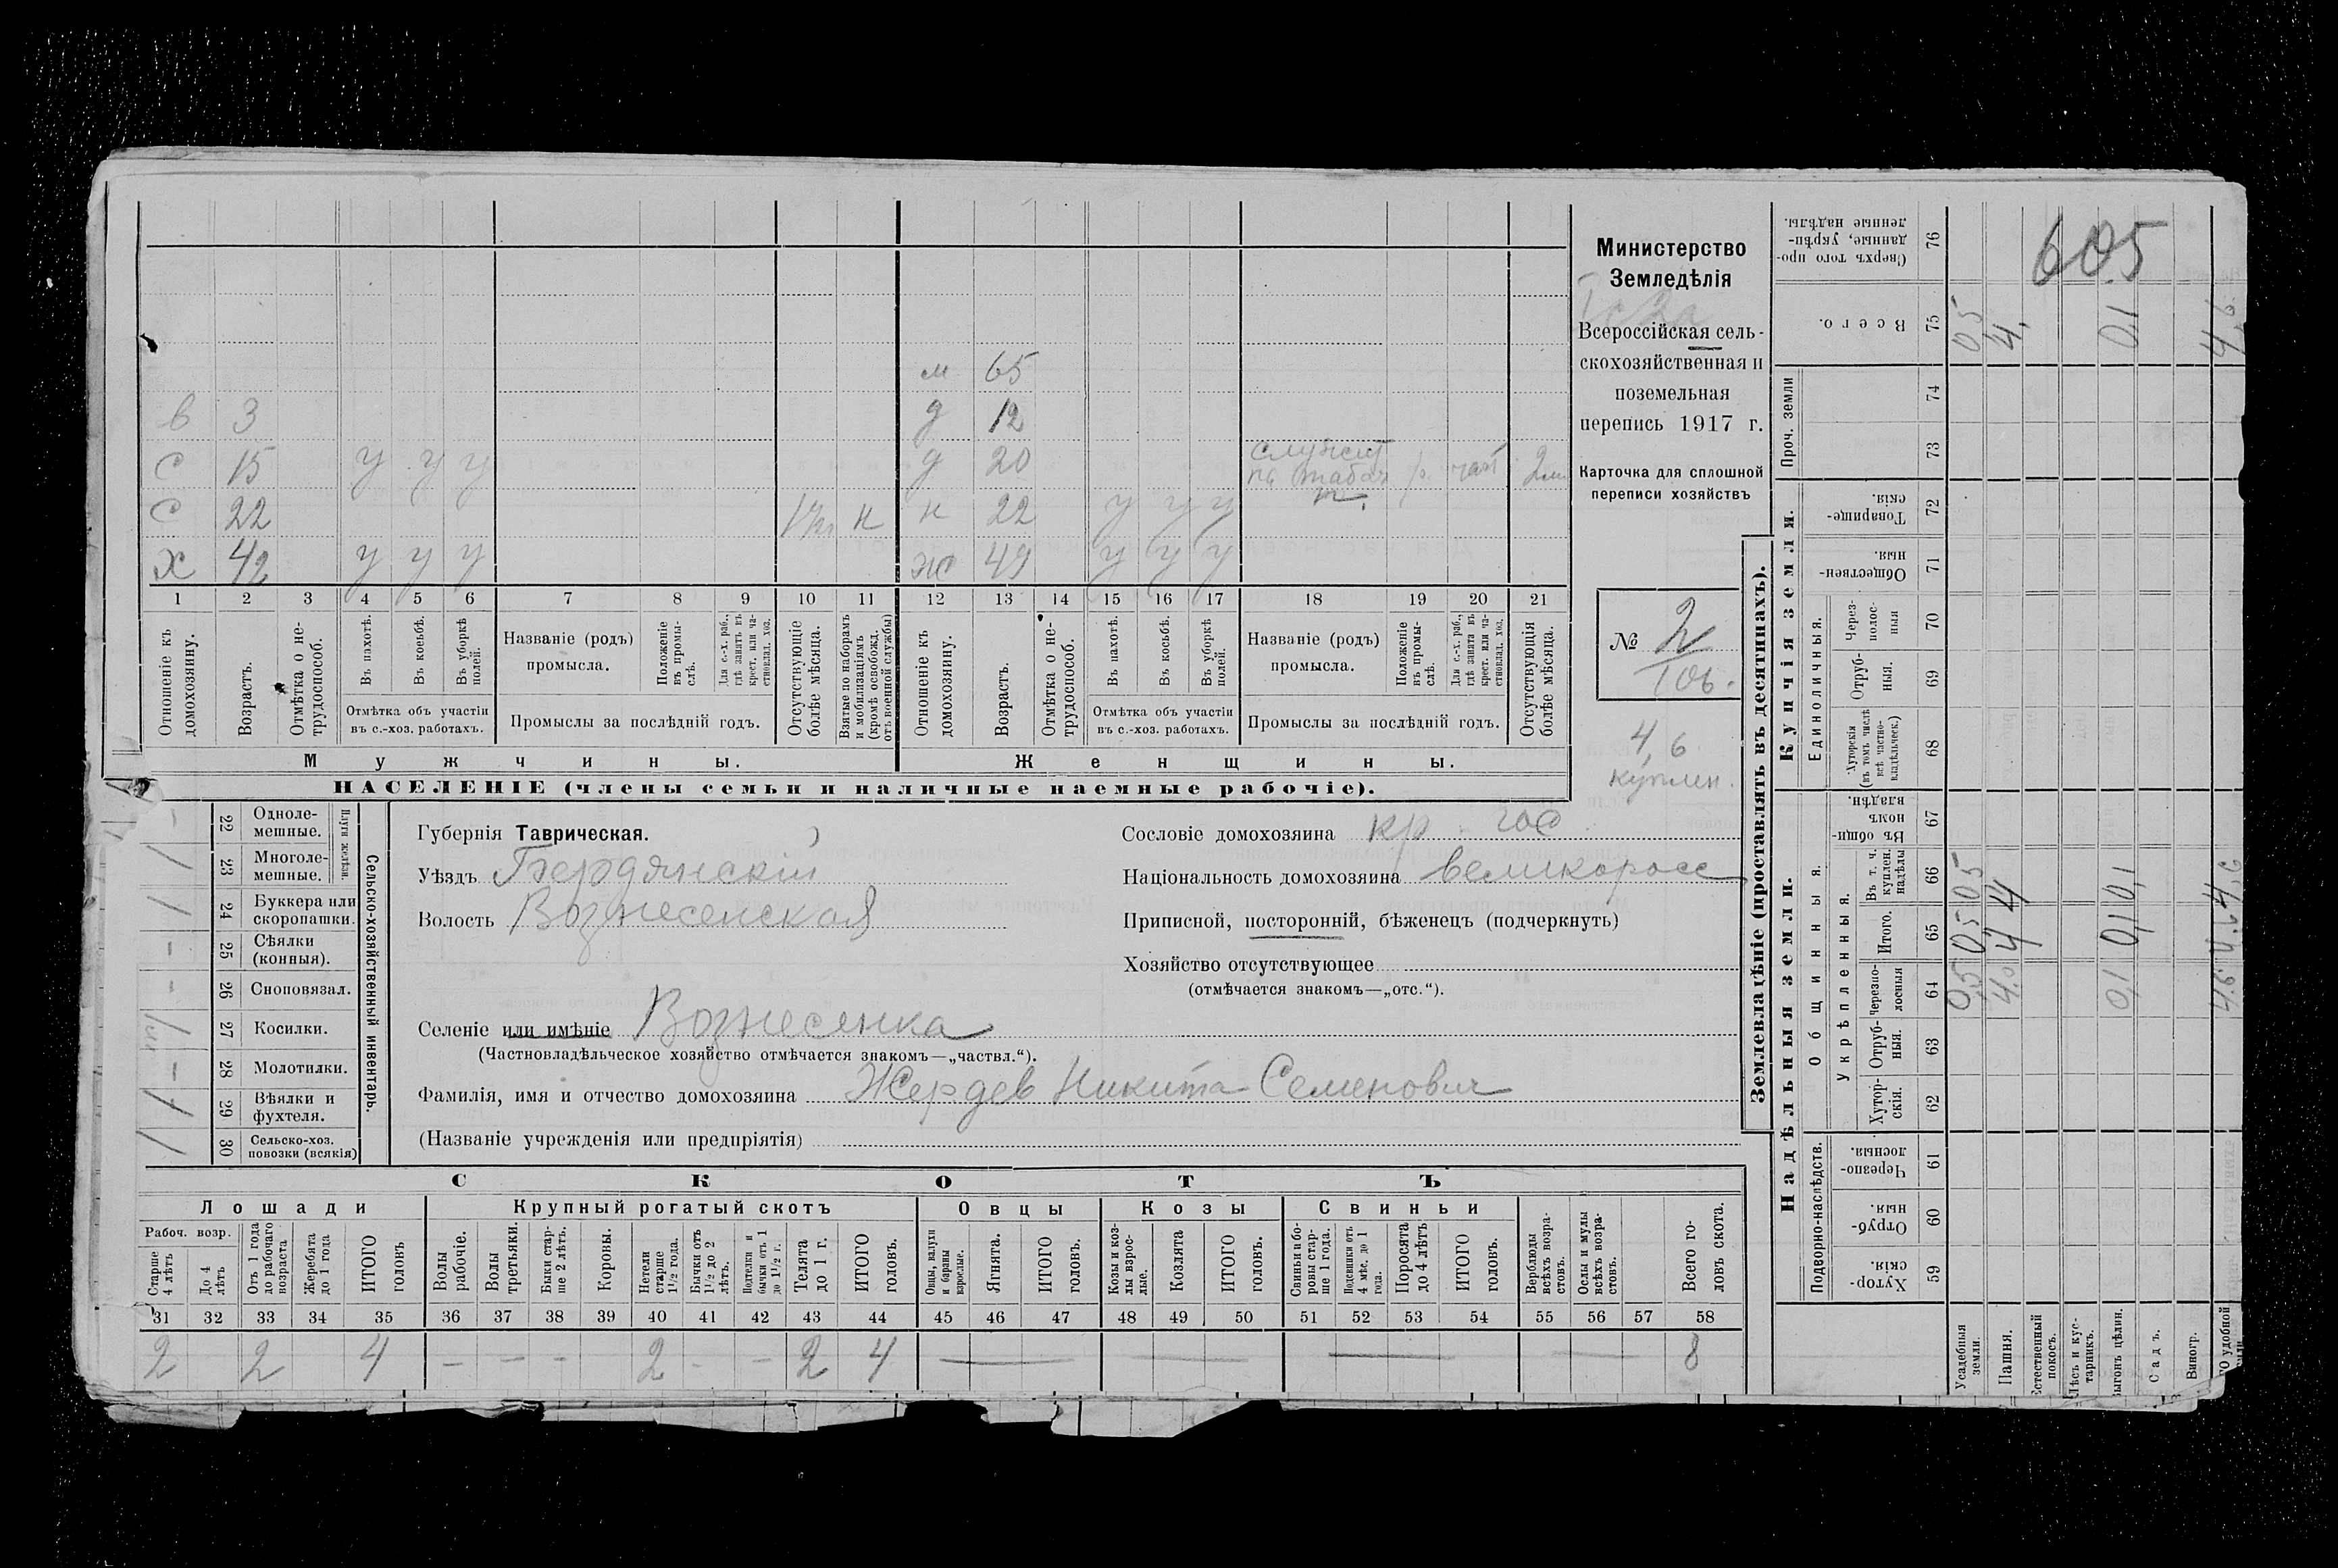 м 65
в 3 д 12
с 15 у у у д 20 служит по табач р. час 2 м
с 22 1 м н н 22 у у у
х 42 у у у ж 49 у у у
1 2 3 4 5 6 7 8 9 10 11 12 13 14 15 16 17 18 19 20 21
Отношеніе къ домохозяину.
Возрастъ.
Отмѣтка о не-трудоспособ.
Въ пахотѣ.
Въ косьбѣ.
Въ уборкѣ полей.
Отмѣтка объ участіи въ с.-хоз. работахъ.
Названіе (родъ) промысла.
Положеніе въ промы-слѣ.
Для с.-х. раб., гдѣ занятъ въ крест. или ча-стновлад. хоз.
Промыслы за послѣдній годъ.
Отсутствующіе болѣе мѣсяца.
Взятые по наборамъ и мобилизаціямъ (кромѣ освобожд. отъ военной службы)
Отношеніе къ домохозяину.
Возрастъ.
Отмѣтка о не-трудоспособ.
Въ пахотѣ.
Въ косьбѣ.
Въ уборкѣ полей.
Отмѣтка объ участіи въ с.-хоз. работахъ.
Названіе (родъ) промысла.
Положеніе въ промы-слѣ.
Для с.-х. раб., гдѣ занята въ крест. или ча-стновлад. хоз.
Промыслы за послѣдній годъ.
Отсутствующія болѣе мѣсяца.
Мужчины.
Женщины.
НАСЕЛЕНІЕ (члены семьи и наличные наемные рабочіе).
Министерство
Земледѣлія
Всероссійская сель-
скохозяйственная и
поземельная
перепись 1917 г.
Карточка для сплошной
переписи хозяйствъ
№ 2
106.
4,6
куплен.
22 Одноле-мешные. -
23 Многоле-мешные. 1
Плуги желѣзн.
24 Буккера или скоропашки. 1
25 Сѣялки (конныя). -
26 Сноповязал. -
27 Косилки.
28 Молотилки. -
29 Вѣялки и фухтеля. 1
30 Сельско-хоз. повозки (всякія) 1
Сельско-хозяйственный инвентарь.
Губернія Таврическая.
Уѣздъ Бердянскій
Волость Вознесенская
Сословіе домохозяина кр. гос
Національность домохозяина великоросс
Приписной, посторонній, бѣженецъ (подчеркнуть)
Хозяйство отсутствующее
(отмѣчается знакомъ—„отс.“).
Селеніе или имѣніе Вознесенка
(Частновладѣльческое хозяйство отмѣчается знакомъ—„частвл.“).
Фамилія, имя и отчество домохозяина Жердев Никита Семенович
(Названіе учрежденія или предпріятія)
СКОТЪ
Лошади
Крупный рогатый скотъ
Овцы
Козы
Свиньи
Рабоч. возр.
Старше 4 лѣтъ
До 4 лѣтъ
Отъ 1 года до рабочаго возраста
Жеребята до 1 года
ИТОГО головъ
Волы рабочіе.
Волы третьяки.
Быки стар-ше 2 лѣтъ.
Коровы.
Нетели старше 1½ года.
Бычки отъ 1½ до 2 лѣтъ.
Подтелки и бычки отъ 1 до 1½ г.
Телята до 1 г.
ИТОГО головъ.
Овцы, валухи и бараны взрослые.
Ягнята.
ИТОГО головъ.
Козы и коз-лы взрос-лые.
Козлята
ИТОГО головъ.
Свиньи и бо-ровы стар-ше 1 года.
Подсвинки отъ 4 мѣс. до 1 года.
Поросята до 4 лѣтъ
ИТОГО головъ.
Верблюды всѣхъ возра-стовъ.
Ослы и мулы всѣхъ возра-стовъ.
Всего го-ловъ скота.
31 32 33 34 35 36 37 38 39 40 41 42 43 44 45 46 47 48 49 50 51 52 53 54 55 56 57 58
2 2 4 - - - 2 - - 2 4 — — — — 8
Землевладѣніе (проставлять въ десятинахъ).
Купчія земли.
Надѣльныя земли.
605
Сверхъ того про-данные, укрѣп-ленные надѣлы. 76
Всего. 75 0,5 4. 0,1 4,6
Проч. земли 74
73
Товарище-скія. 72
Обществен-ныя. 71
Единоличныя.
Через-полос-ныя 70
Отруб-ныя. 69
Хуторскія (въ томъ числѣ всѣ частно-владѣльческ.) 68
Общинныя.
Въ общи-номъ владѣн. 67
Укрѣпленныя.
Въ т. ч. куплен. надѣлы 66 0,5 4 0,1 4,6
Итого. 65 0,5 4 0,1 4,6
Черезпо-лосныя 64 0,5 4,0 0,1 4,6
Отруб-ныя. 63
Хутор-скія. 62
Подворно-наслѣдств.
Черезпо-лосныя. 61
Отруб-ныя. 60
Хутор-скія. 59
Усадебныя земли.
Пашня.
Естественный покосъ.
Лѣсъ и кус-тарникъ.
Выгонъ цѣлин.
Садъ.
Виногр.